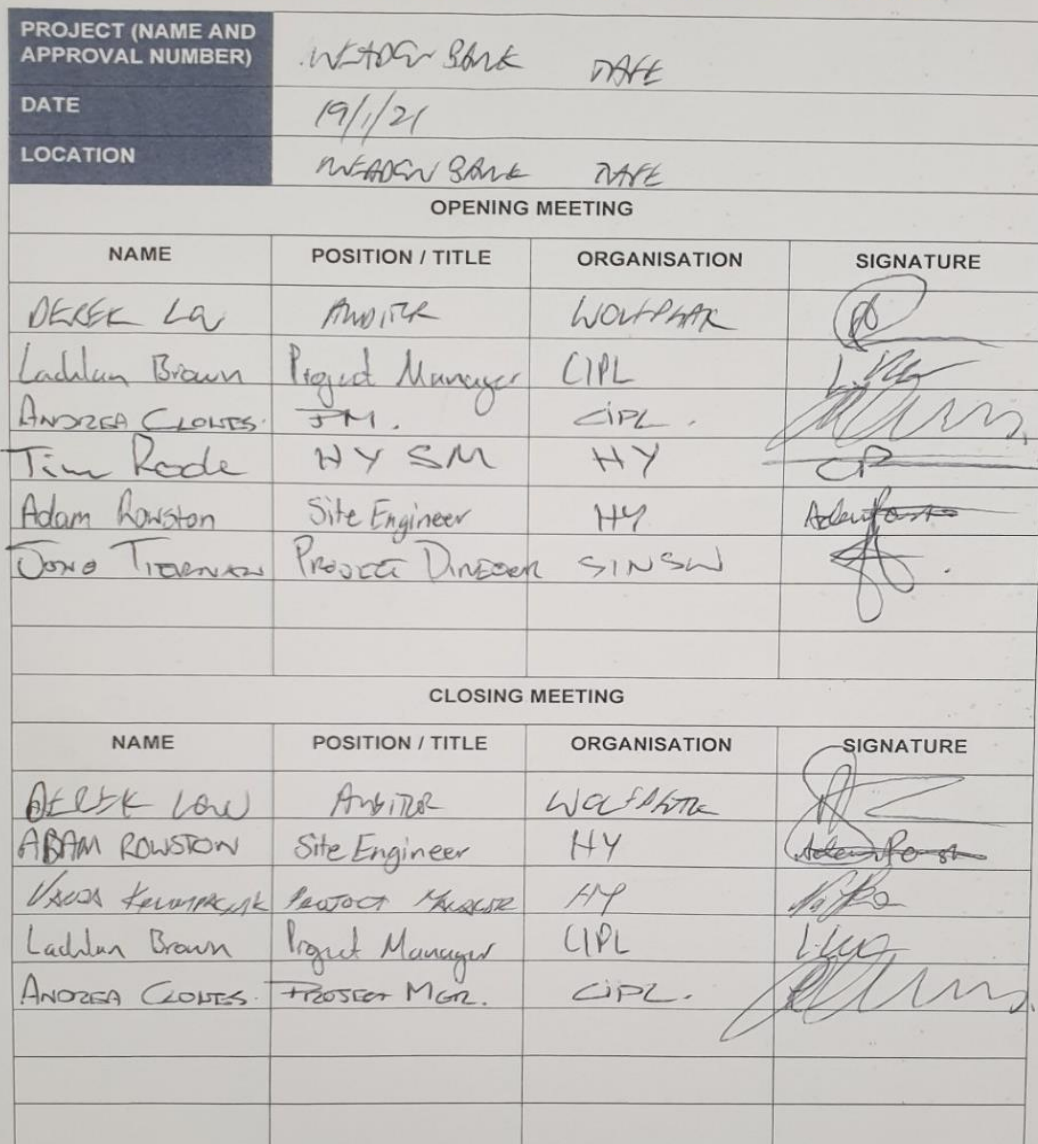 PROJECT (NAME AND
APPROVAL NUMBER) MEADOW BANK TAFE
DATE 19/1/21
LOCATION MEADOW BANK TAFE
OPENING MEETING
NAME POSITION / TITLE ORGANISATION SIGNATURE
DEREK LOW AUDITOR WOLFPEAK
Lachlan Brown Project Manager CIPL
ANDREA CLONTS. PM. CiPL.
Tim Rode HY SM HY
Adam Rowston Site Engineer HY
TIERNAN PROJECT DIRECTOR SINSW
CLOSING MEETING
NAME POSITION / TITLE ORGANISATION SIGNATURE
DEREK LOW AUDITOR WOLFPEAK
ADAM ROWSTON Site Engineer HY
PROJECT MANAGER HY
Lachlan Brown Project Manager CIPL
ANDREA CLONTS. PROJECT MGR. CiPL.